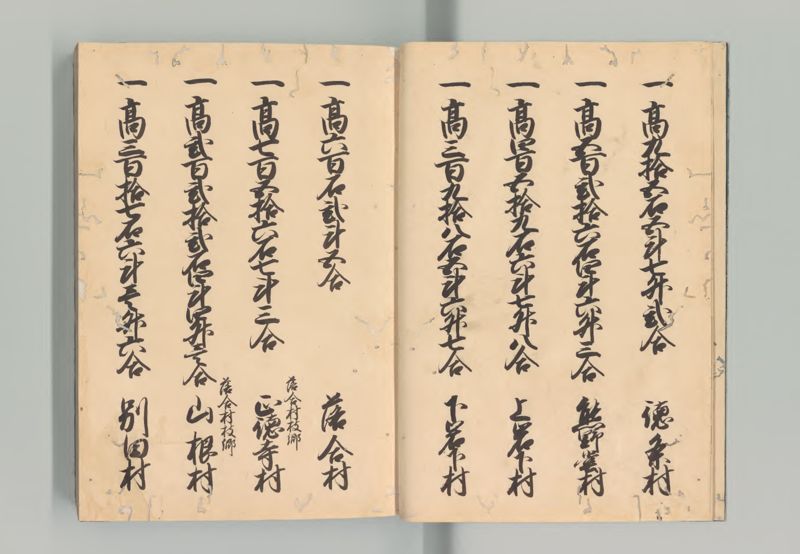 一高九拾五石五斗七升弐合 徳条村
一高五百弐拾六石四斗六升三合 熊野堂村
一高四百五拾九石六斗七升八合 上岩下村
一高三百九拾八石五斗六升七合 下岩下村
一高六百石弐斗五合 落合村
落合村枝郷
一高七百五拾六石七斗三合 正徳寺村
落合村枝郷
一高弐百弐拾弐石四斗四升壱合 山根村
一高三百拾七石六斗壱升六合 別田村